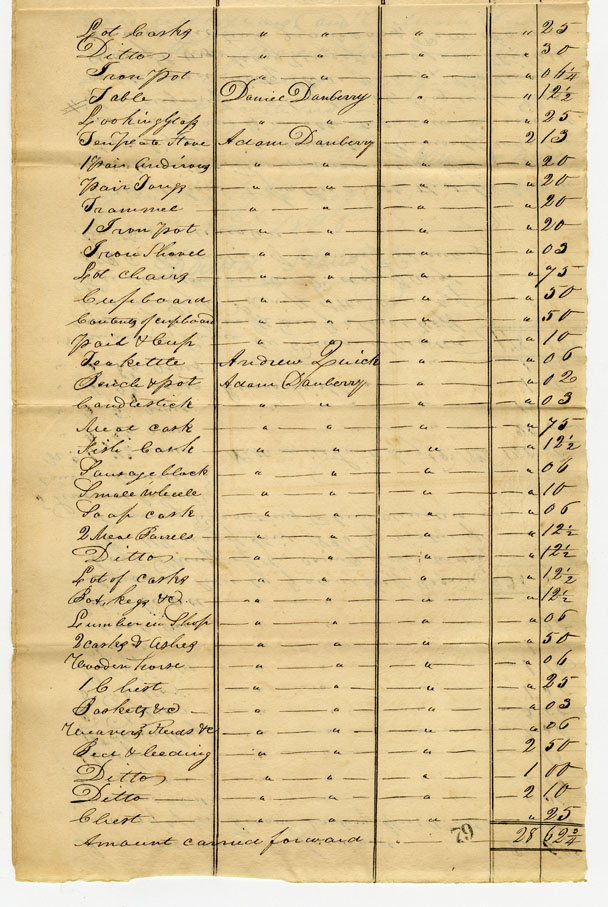 Lot Casks " " " " 25
Ditto " " " " 30
Iron Pot " " " " 06 1/4
Table Daniel Danberry " " 12 1/2
Lookinglass " " " " 25
Tenplate Stove Adam Danberry " 2 13
1 Pair Andirons " " " " 20
Pair Tongs " " " " 20
Trammel " " " " 20
1 Iron Pot " " " " 20
Iron Shovel " " " " 03
Lot chairs " " " " 75
Cupboard " " " " 50
Contents of cupboard " " " " 50
Pail & Cup " " " " 10
Teakettle Andrew Quick " " 06
& pot Adam Danberry " " 02
Candlestick " " " " 03
Meat cask " " " " 75
Fish Cask " " " " 12 1/2
Sausage block " " " " 06
Small wheele " " " " 10
Soap cask " " " " 06
2 Meat Barrels " " " " 12 1/2
Ditto " " " " 12 1/2
Lot of casks " " " " 12 1/2
Box, kegs &c " " " " 12 1/2
Lumber in Shop " " " " 06
2 casks & Ashes " " " " 50
Wooden horse " " " " 06
1 Chest " " " " 25
Baskets &c " " " " 03
Weavers Reeds &c " " " " 06
Bed & beding " " " 2 50
Ditto " " " 1 00
Ditto " " " 2 10
Chest " " " " 25
Amount carried forward 28 62 3/4
79